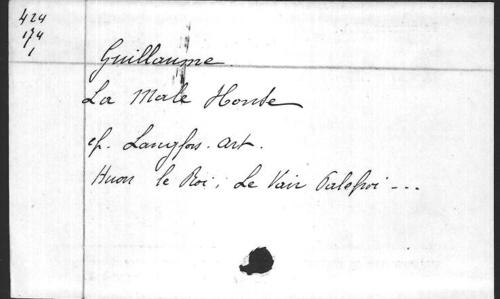 424
174
1
Guillaume.
La Male Honte
cf. Langfors. Art.
Huon le Roi; Le Vair Palefroi ---